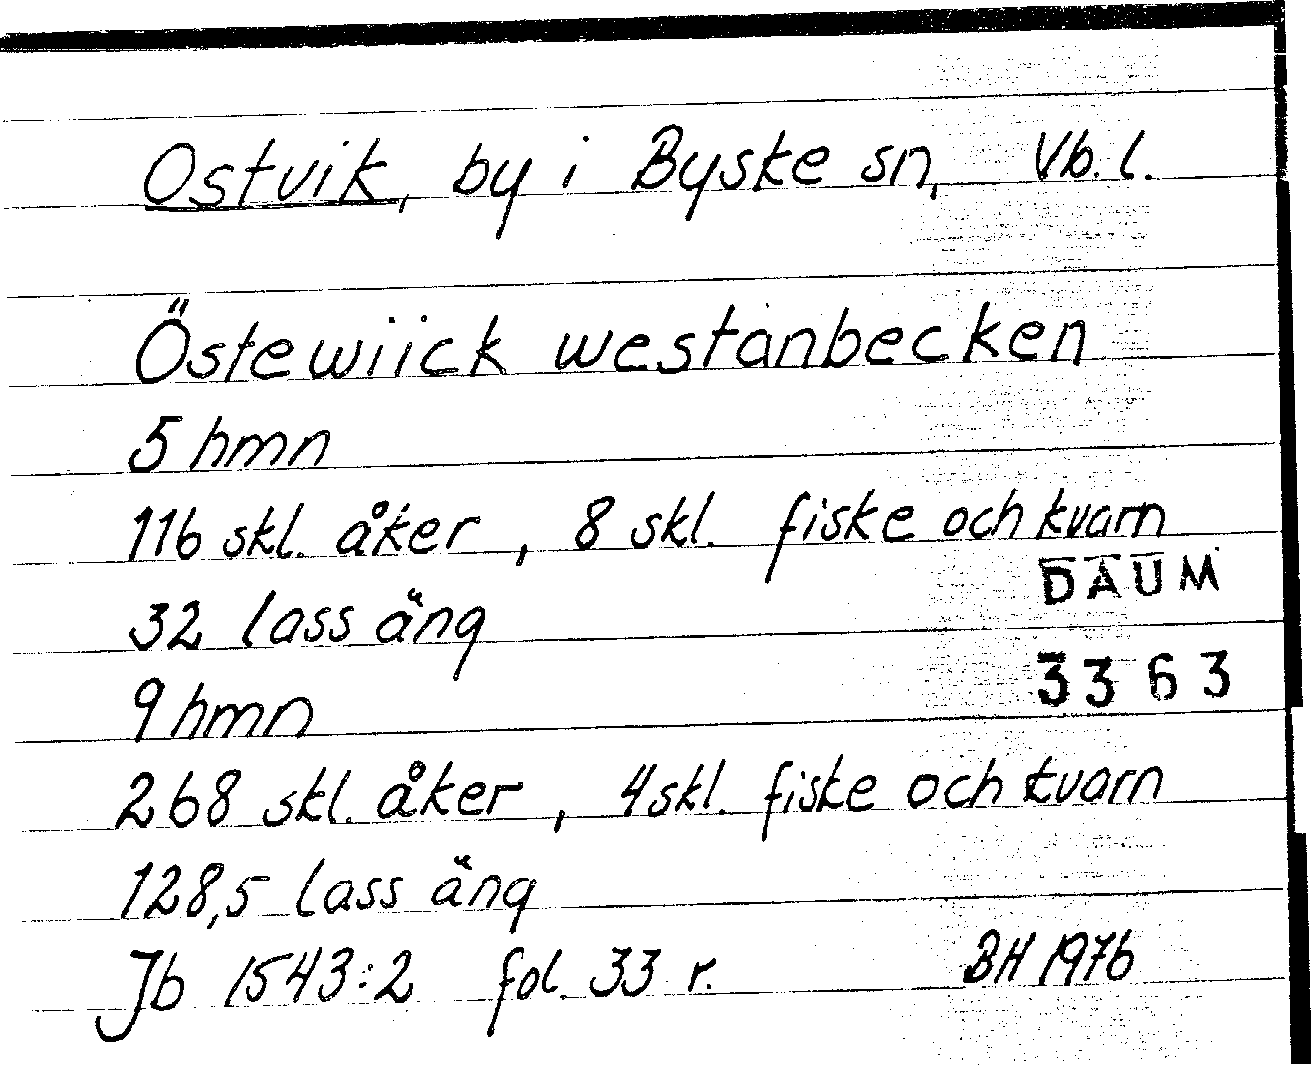 Ostvik, by i Byske sn, Vb. l.
Östewiick westanbecken
5 hmn
116 skl. åker, 8 skl. fiske och kvarn
DAUM
32 lass äng
3363
9 hmn
268 skl. åker, 4 skl. fiske och kvarn
128,5 lass äng
Jb 1543:2 fol. 33 r. BH 1976